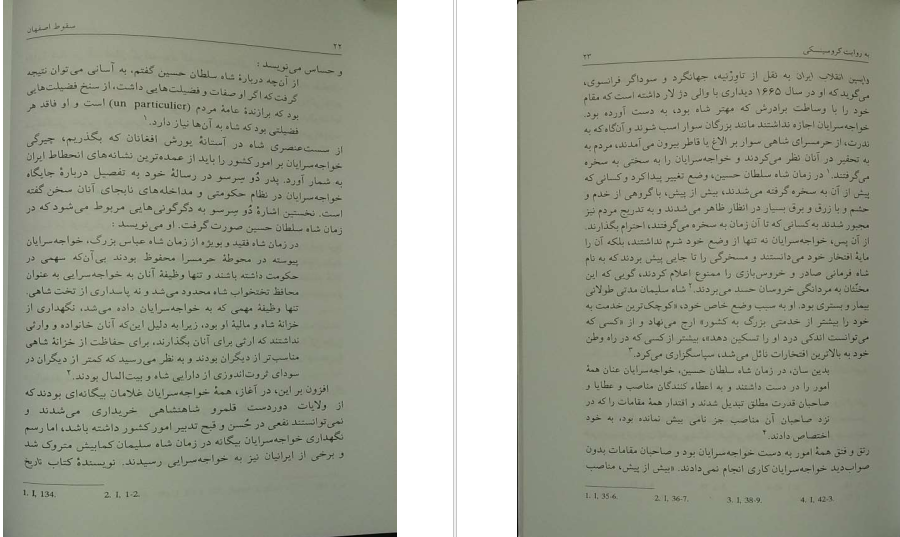 سقوط اصفهان
۲۲
و حساس می‌نویسد :
از آن‌چه دربارهٔ شاه سلطان حسین گفتم، به آسانی می‌توان نتیجه
گرفت که اگر او صفات و فضیلت‌هایی داشت، از سنخ فضیلت‌هایی
بود که برازندهٔ عامهٔ مردم (un particulier) است و او فاقد هر
فضیلتی بود که شاه به آن‌ها نیاز دارد.۱
از سست‌عنصری شاه در آستانهٔ یورش افغانان که بگذریم، چیرگی
خواجه‌سرایان بر امور کشور را باید از عمده‌ترین نشانه‌های انحطاط ایران
به شمار آورد. پدر دُو سِرسو در رسالهٔ خود به تفصیل دربارهٔ جایگاه
خواجه‌سرایان در نظام حکومتی و مداخله‌های نابجای آنان سخن گفته
است. نخستین اشارهٔ دُو سِرسو به دگرگونی‌هایی مربوط می‌شود که در
زمان شاه سلطان حسین صورت گرفت. او می‌نویسد :
در زمان شاه فقید و بویژه از زمان شاه عباس بزرگ، خواجه‌سرایان
پیوسته در محوطهٔ حرمسرا محفوظ بودند بی‌آن‌که سهمی در
حکومت داشته باشند و تنها وظیفهٔ آنان به خواجه‌سرایی به عنوان
محافظ تختخواب شاه محدود می‌شد و نه پاسداری از تخت شاهی.
تنها وظیفهٔ مهمی که به خواجه‌سرایان داده می‌شد، نگهداری از
خزانهٔ شاه و مالیهٔ او بود، زیرا به دلیل این‌که آنان خانواده و وارثی
نداشتند که ارثی برای آنان بگذارند، برای حفاظت از خزانهٔ شاهی
مناسب‌تر از دیگران بودند و به نظر می‌رسید که کمتر از دیگران در
سودای ثروت‌اندوزی از دارایی شاه و بیت‌المال بودند.۲
افزون بر این، در آغاز، همهٔ خواجه‌سرایان غلامان بیگانه‌ای بودند که
از ولایات دوردست قلمرو شاهنشاهی خریداری می‌شدند و
نمی‌توانستند نفعی در حُسن و قبح تدبیر امور کشور داشته باشد، اما رسم
نگهداری خواجه‌سرایان بیگانه در زمان شاه سلیمان کمابیش متروک شد
و برخی از ایرانیان نیز به خواجه‌سرایی رسیدند. نویسندهٔ کتاب تاریخ
1. I, 134.    2. I, 1-2.
به روایت کروسینسکی
۲۳
واپسین انقلاب ایران به نقل از تاوِرْنیه، جهانگرد و سوداگر فرانسوی،
می‌گوید که او در سال ۱۶۶۵ دیداری با والی دژ لار داشته است که مقام
خود را با وساطت برادرش که مهتر شاه بود، به دست آورده بود.
خواجه‌سرایان اجازه نداشتند مانند بزرگان سوار اسب شوند و آن‌گاه که به
ندرت، از حرمسرای شاهی سوار بر الاغ یا قاطر بیرون می‌آمدند، مردم به
به تحقیر در آنان نظر می‌کردند و خواجه‌سرایان را به سختی به سخره
می‌گرفتند.۱ در زمان شاه سلطان حسین، وضع تغییر پیدا کرد و کسانی که
پیش از آن به سخره گرفته می‌شدند، بیش از پیش، با گروهی از خدم و
حشم و با زرق و برق بسیار در انظار ظاهر می‌شدند و به تدریج مردم نیز
مجبور شدند به کسانی که تا آن زمان به سخره می‌گرفتند، احترام بگذارند.
از آن پس، خواجه‌سرایان نه تنها از وضع خود شرم نداشتند، بلکه آن را
مایهٔ افتخار خود می‌دانستند و مسخرگی را تا جایی پیش بردند که به نام
شاه فرمانی صادر و خروس‌بازی را ممنوع اعلام کردند، گویی که این
مخنّثان به مردانگی خروسان حسد می‌بردند.۲ شاه سلیمان مدتی طولانی
بیمار و بستری بود. او به سبب وضع خاص خود، «کوچک‌ترین خدمت به
خود را بیشتر از خدمتی بزرگ به کشور» ارج می‌نهاد و از «کسی که
می‌توانست اندکی درد او را تسکین دهد»، بیشتر از کسی که در راه وطن
خود به بالاترین افتخارات نائل می‌شد، سپاسگزاری می‌کرد.۳
بدین سان، در زمان شاه سلطان حسین، خواجه‌سرایان عنان همهٔ
امور را در دست داشتند و به اعطاء کنندگان مناصب و عطایا و
صاحبان قدرت مطلق تبدیل شدند و اقتدار همهٔ مقامات را که در
نزد صاحبان آن مناصب جز نامی بیش نمانده بود، به خود
اختصاص دادند.۴
رتق و فتق همهٔ امور به دست خواجه‌سرایان بود و صاحبان مقامات بدون
صوابدید خواجه‌سرایان کاری انجام نمی‌دادند. «بیش از پیش، مناصب
1. I, 35-6.    2. I, 36-7.    3. I, 38-9.    4. I, 42-3.